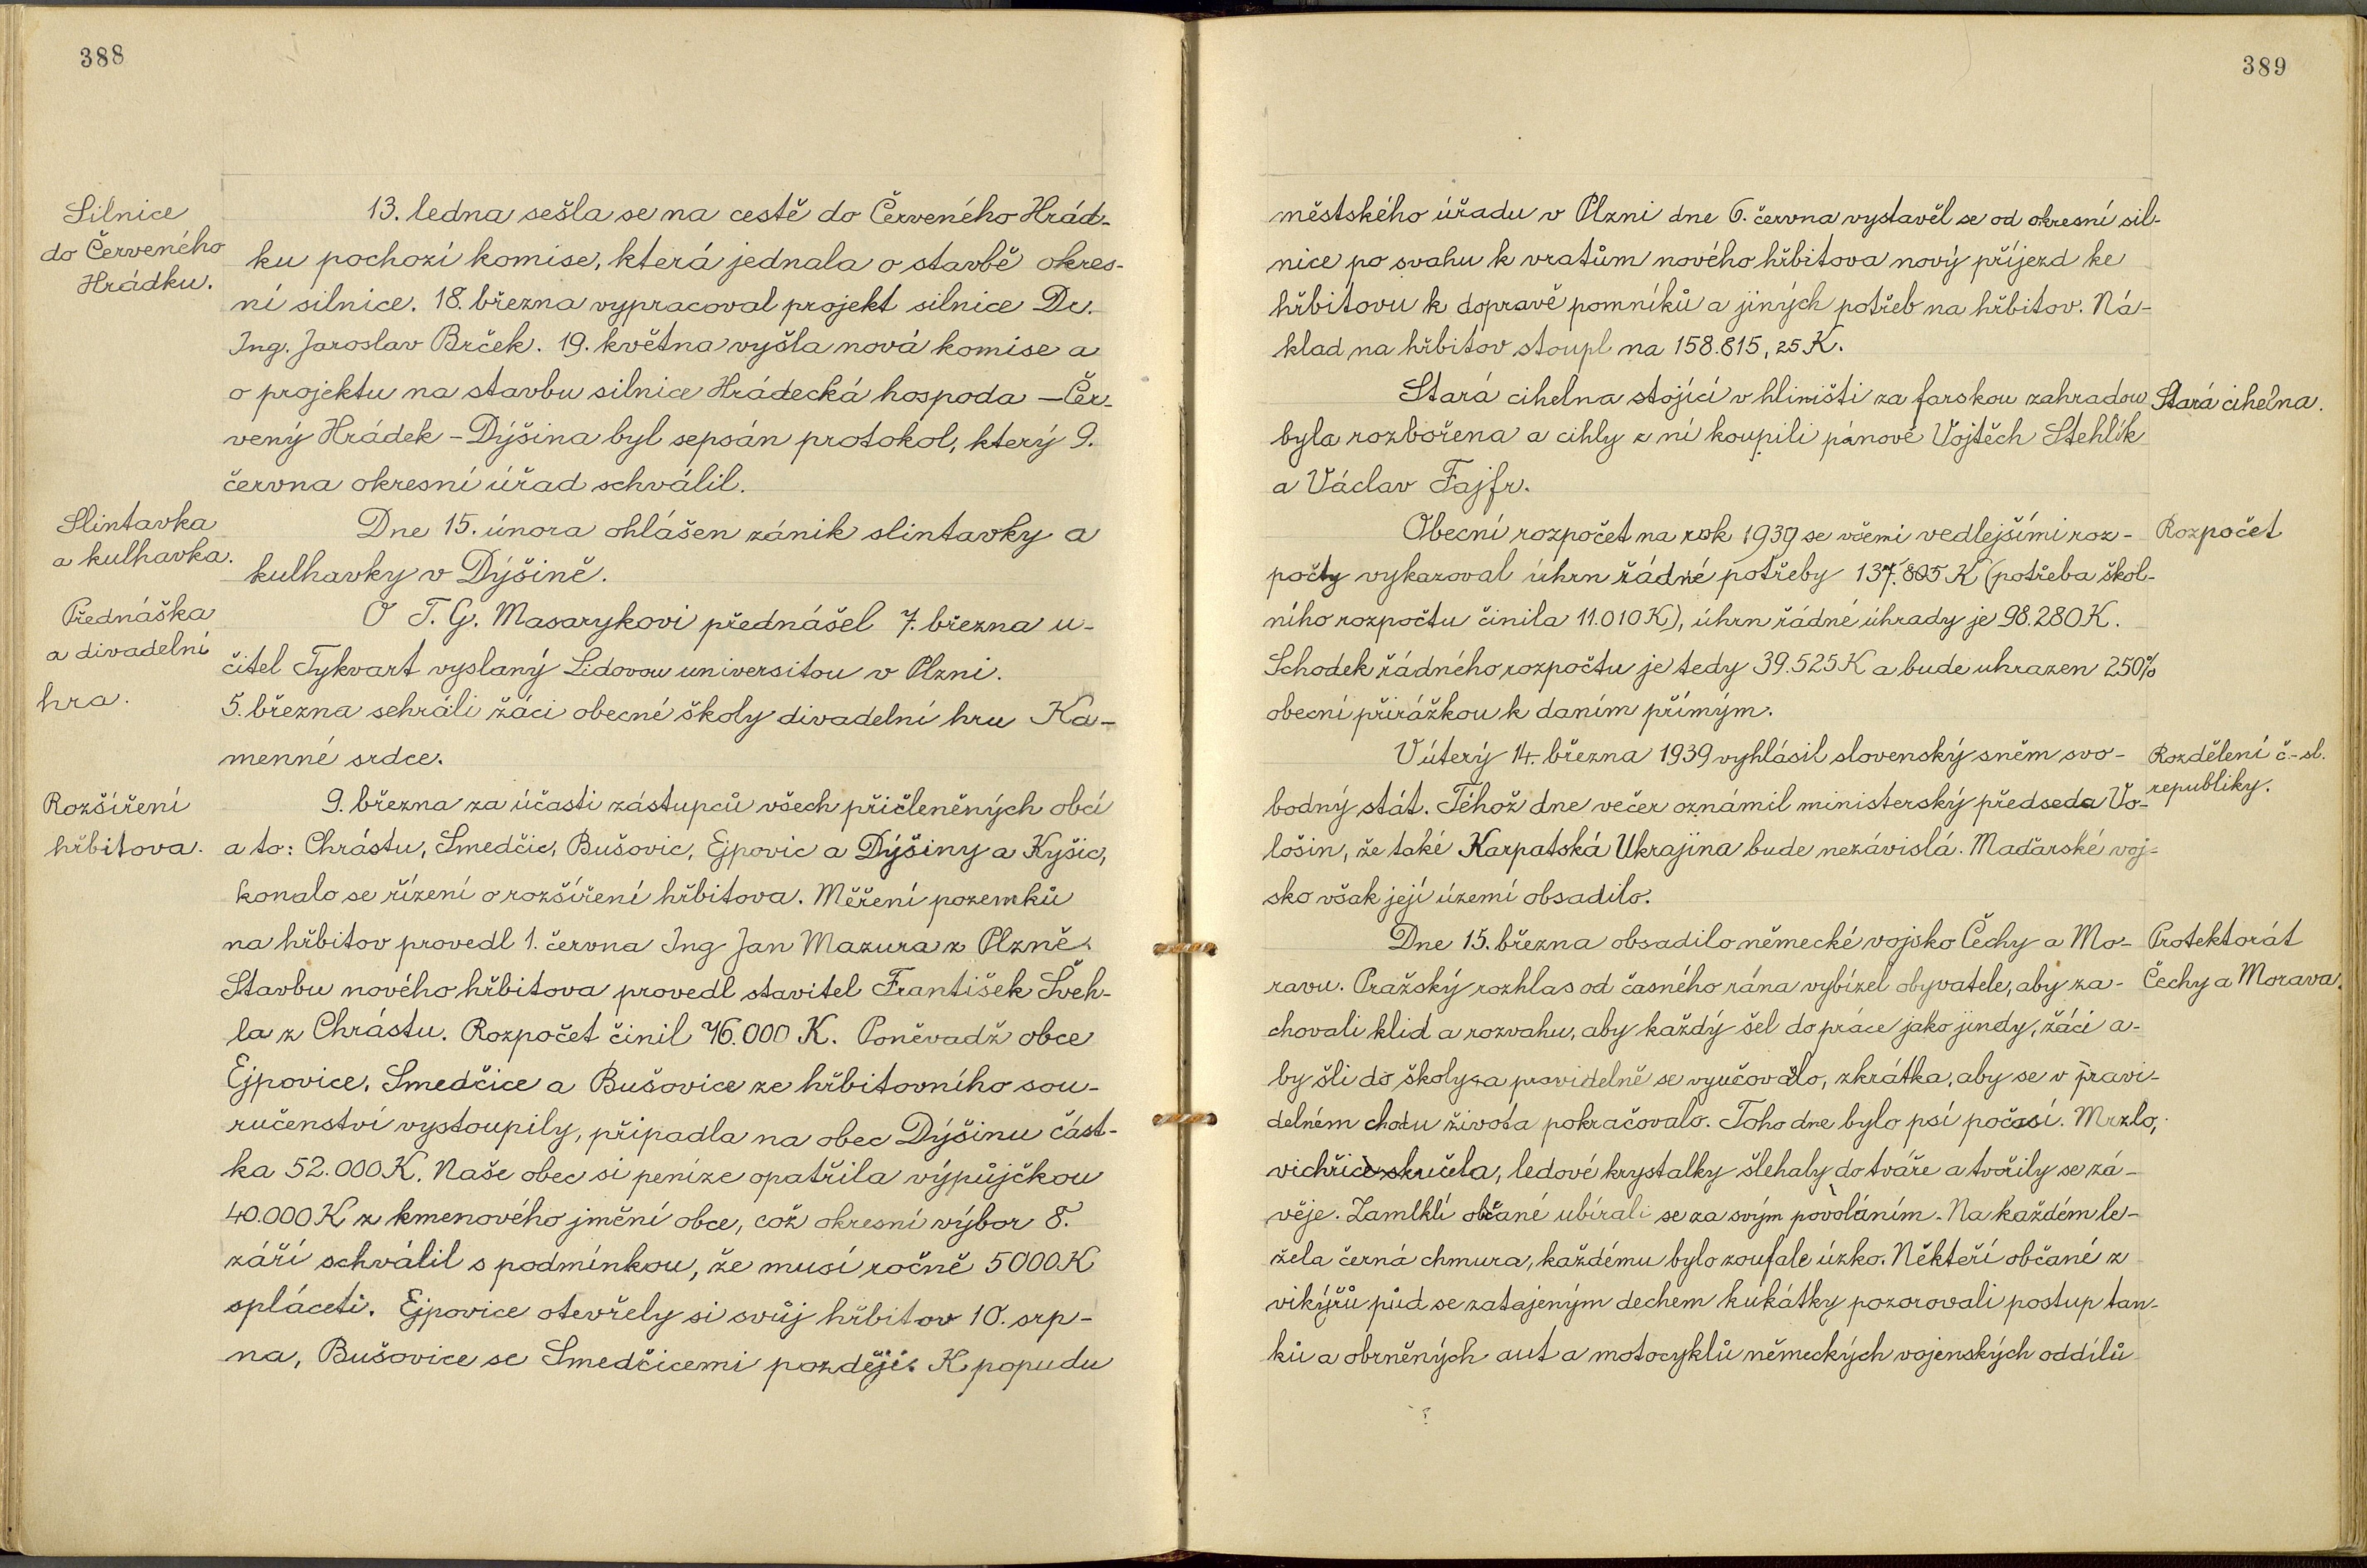 388
Silnice
do Červeného
Hrádku.
13. ledna sešla se na cestě do Červeného Hrád-
ku pochozí komise, která jednala o stavbě okres-
ní silnice. 18. března vypracoval projekt silnice Dr.
Ing. Jaroslav Brček. 19. května vyšla nová komise a
o projektu na stavbu silnice Hrádecká hospoda – Čer-
vený Hrádek – Dýšina byl sepsán protokol, který 9.
června okresní úřad schválil.
Slintavka
a kulhavka.
Dne 15. února ohlášen zánik slintavky a
kulhavky v Dýšině.
Přednáška
a divadelní
hra.
O T. G. Masarykovi přednášel 7. března u-
čitel Tykvart vyslaný Lidovou universitou v Plzni.
5. března sehráli žáci obecné školy divadelní hru Ka-
menné srdce.
Rozšíření
hřbitova.
9. března za účasti zástupců všech přičleněných obcí
a to: Chrástu, Smedčic, Bušovic, Ejpovic a Dýšiny a Kyšic,
konalo se řízení o rozšíření hřbitova. Měření pozemků
na hřbitov provedl 1. června Ing Jan Mazura z Plzně.
Stavbu nového hřbitova provedl stavitel František Šveh-
la z Chrástu. Rozpočet činil 76.000 K. Poněvadž obce
Ejpovice, Smedčice a Bušovice ze hřbitovního sou-
ručenství vystoupily, připadla na obec Dýšinu část-
ka 52.000 K. Naše obec si peníze opatřila výpůjčkou
40.000 K z kmenového jmění obce, což okresní výbor 8.
září schválil s podmínkou, že musí ročně 5000 K
spláceti. Ejpovice otevřely si svůj hřbitov 10. srp-
na, Bušovice se Smedčicemi později. K popudu
389
městského úřadu v Plzni dne 6. června vystavěl se od okresní sil-
nice po svahu k vratům nového hřbitova nový příjezd ke
hřbitovu k dopravě pomníků a jiných potřeb na hřbitov. Ná-
klad na hřbitov stoupl na 158.815, 25 K.
Stará cihelna stojící v hliništi za farskou zahradou
byla rozbořena a cihly z ní koupili pánové Vojtěch Stehlík
a Václav Fajfr.
Stará cihelna.
Obecní rozpočet na rok 1939 se všemi vedlejšími roz-
počty vykazoval úhrn řádné potřeby 137.805 K (potřeba škol-
ního rozpočtu činila 11.010 K), úhrn řádné úhrady je 98.280 K.
Schodek řádného rozpočtu je tedy 39.525 K a bude uhrazen 250%
obecní přirážkou k daním přímým.
Rozpočet
V úterý 14. března 1939 vyhlásil slovenský sněm svo-
bodný stát. Téhož dne večer oznámil ministerský předseda Vo-
lošin, že také Karpatská Ukrajina bude nezávislá. Maďarské voj-
sko však její území obsadilo.
Rozdělení č.-sl.
republiky.
Dne 15. března obsadilo německé vojsko Čechy a Mo-
ravu. Pražský rozhlas od časného rána vybízel obyvatele, aby za-
chovali klid a rozvahu, aby každý šel do práce jako jindy, žáci a-
by šli do školy a pravidelně se vyučovalo, zkrátka, aby se v pravi-
delném chodu života pokračovalo. Toho dne bylo psí počasí. Mrzlo,
vichřice skučela, ledové krystalky šlehaly do tváře a tvořily se zá-
věje. Zamlklí občané ubírali se za svým povoláním. Na každém le-
žela černá chmura, každému bylo zoufale úzko. Někteří občané z
vikýřů půd se zatajeným dechem kukátky pozorovali postup tan-
ků a obrněných aut a motocyklů německých vojenských oddílů
Protektorát
Čechy a Morava.